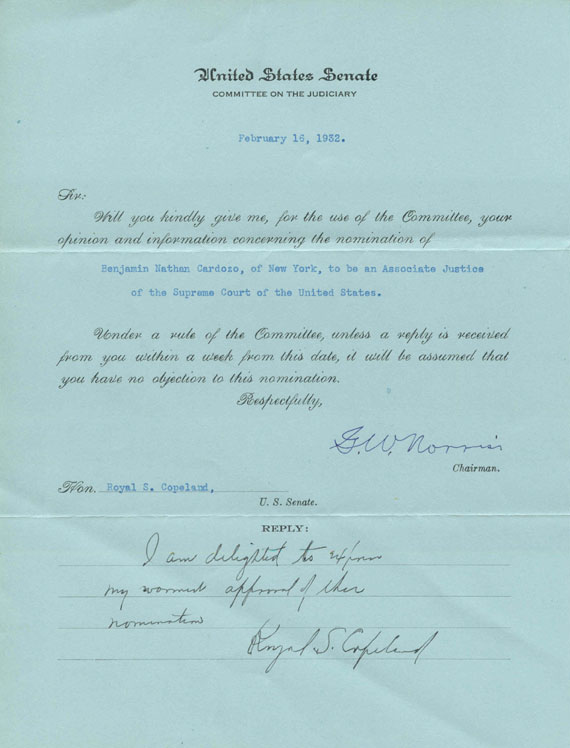 United States Senate
COMMITTEE ON THE JUDICIARY
February 16, 1932.
Sir:
Will you kindly give me, for the use of the Committee, your
opinion and information concerning the nomination of
Benjamin Nathan Cardozo, of New York, to be an Associate Justice
of the Supreme Court of the United States.
Under a rule of the Committee, unless a reply is received
from you within a week from this date, it will be assumed that
you have no objection to this nomination.
Respectfully,
G. W. Norris
Chairman.
Hon. Royal S. Copeland,
U. S. Senate.
REPLY:
I am delighted to express
my warmest approval of this
nomination
Royal S. Copeland